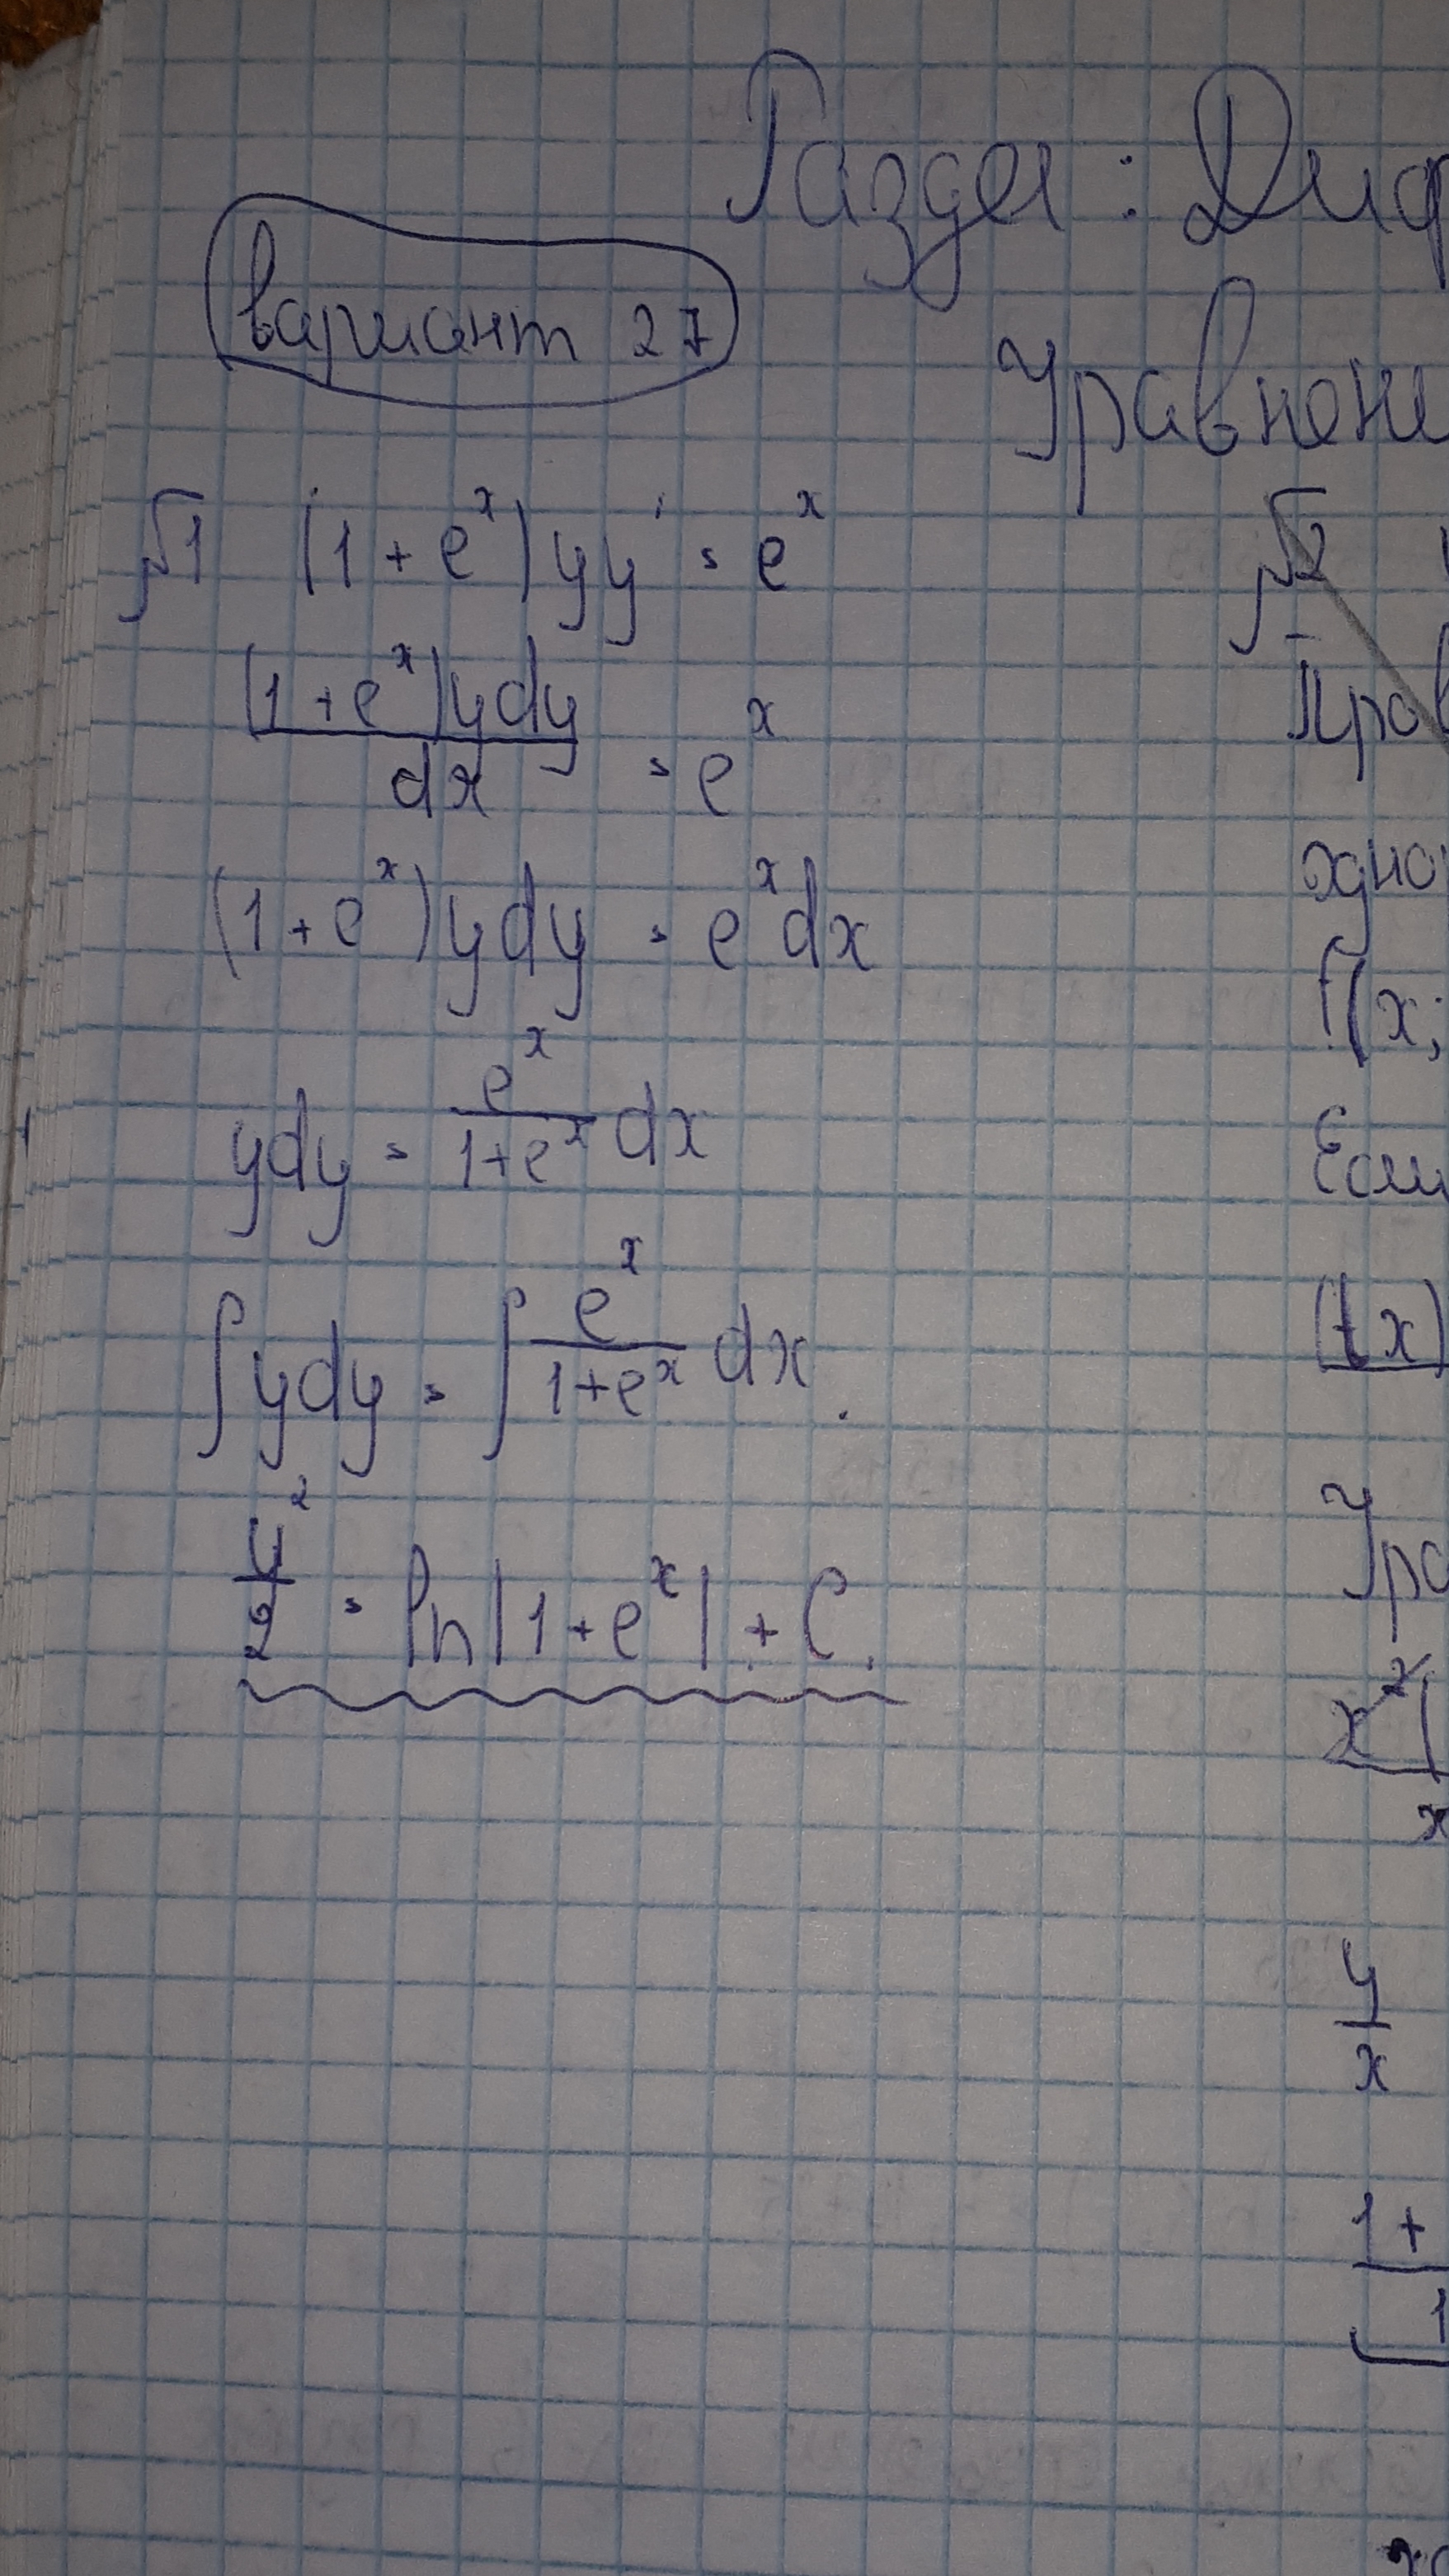 Раздел: Диф
вариант 27
Уравнени
№1 (1+e^x)yy' = e^x
(1+e^x)ydy/dx = e^x
(1+e^x)ydy = e^x dx
ydy = e^x/(1+e^x) dx
∫ydy = ∫e^x/(1+e^x) dx.
y^2/2 = ln|1+e^x| + C.
№2
Пров
одно
f(x;
Если
(tx)
Ура
x^2(
x
y/x
1+
1